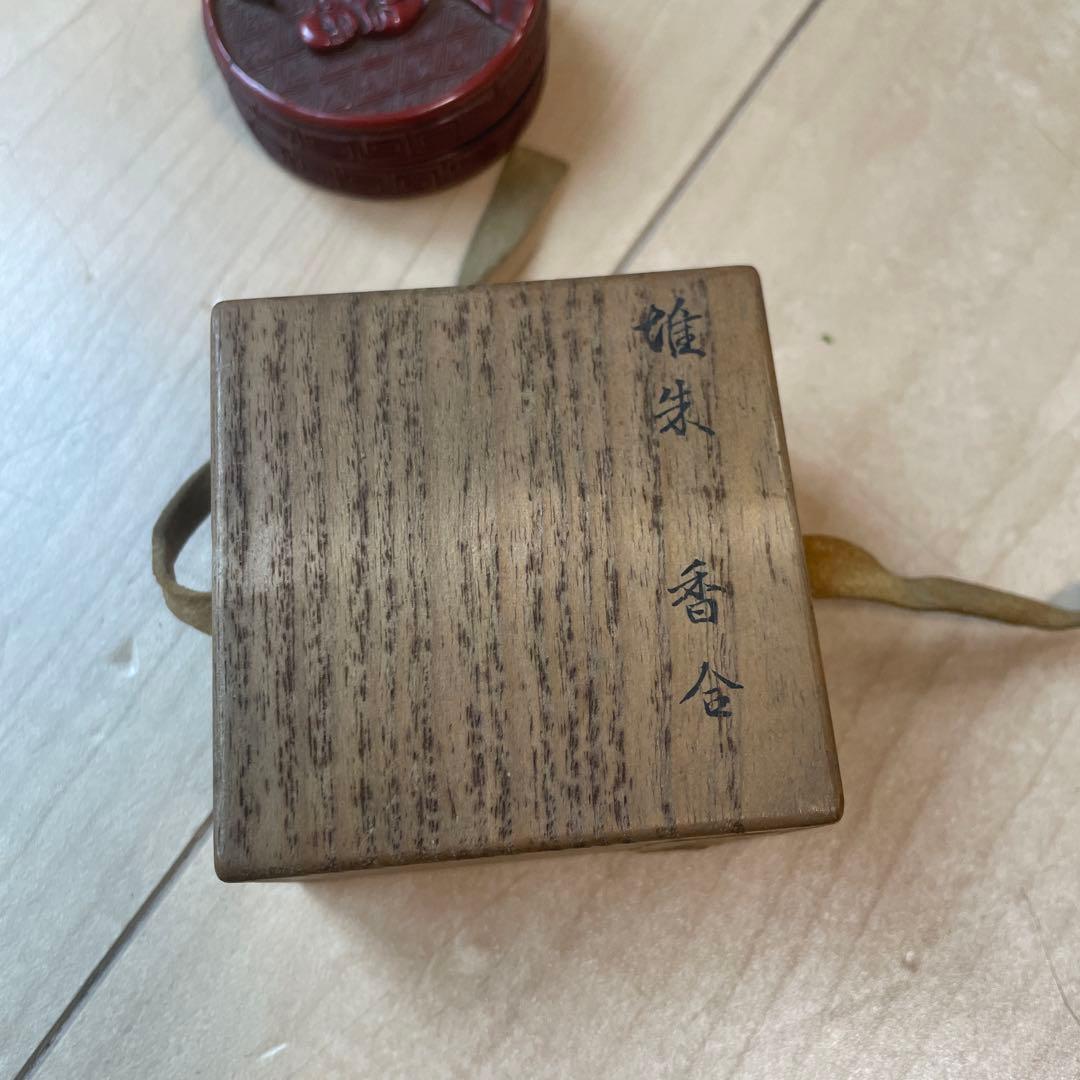 堆朱 香合